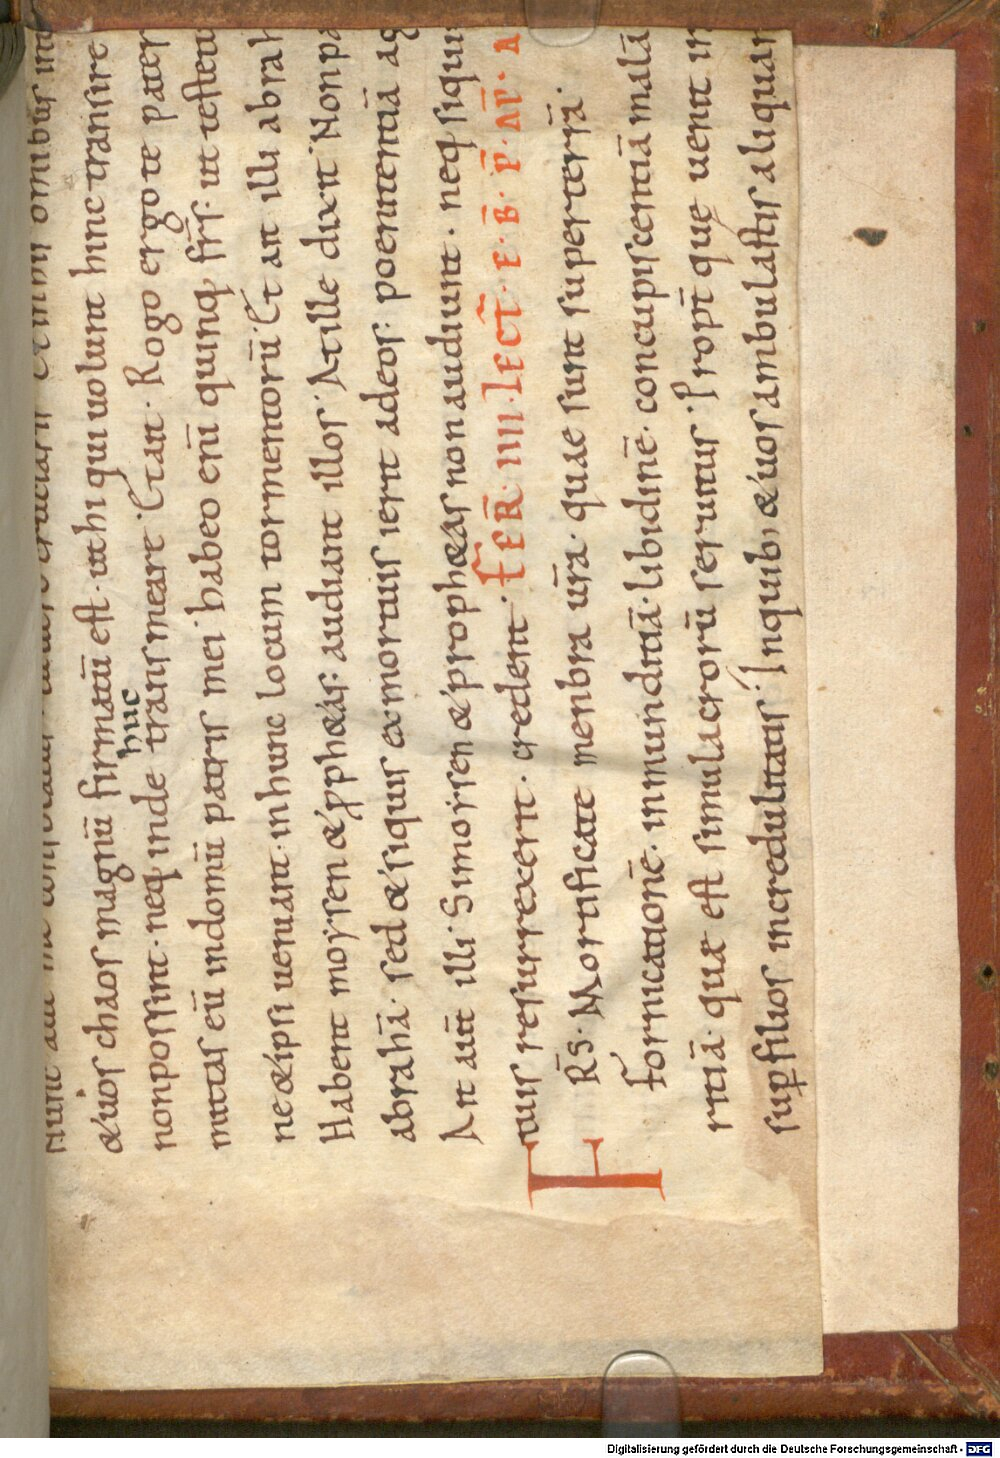 Nunc aut
& uos chaos magnū firmatū est. ut hi qui uolunt hinc transire
huc
non possint. neq; inde transmeare. Et ait. Rogo ergo te pater
mittas eū in domū patris mei. habeo eni quinq; frs. ut testetur
ne & ipsi ueniant. in hunc locum tormentorū. Et ait illi abrah
Habent moysen & pphetas. audiant illos. At ille dixit Non pa
abrahā. sed & siquis ex mortuis ierit ad eos. poenitentiā ag
Ait aut illi. Si moysen & prophetas non audiunt. neq; siquis
tuis resurrexerit. credent. FER̄. IIII. LECT̄. E. B̄. P̄. AP̄. A
FRS̄. Mortificate menbra ur̄a. quae sunt super terrā.
fornicationē. inmunditiā. libidinē. concupiscentiā malā
ritiā. quae est simulacrorū seruitus. Propt quę uenit ir
sup filios incredulitatis. In quib; & uos ambulastis aliquan
Digitalisierung gefördert durch die Deutsche Forschungsgemeinschaft - DFG